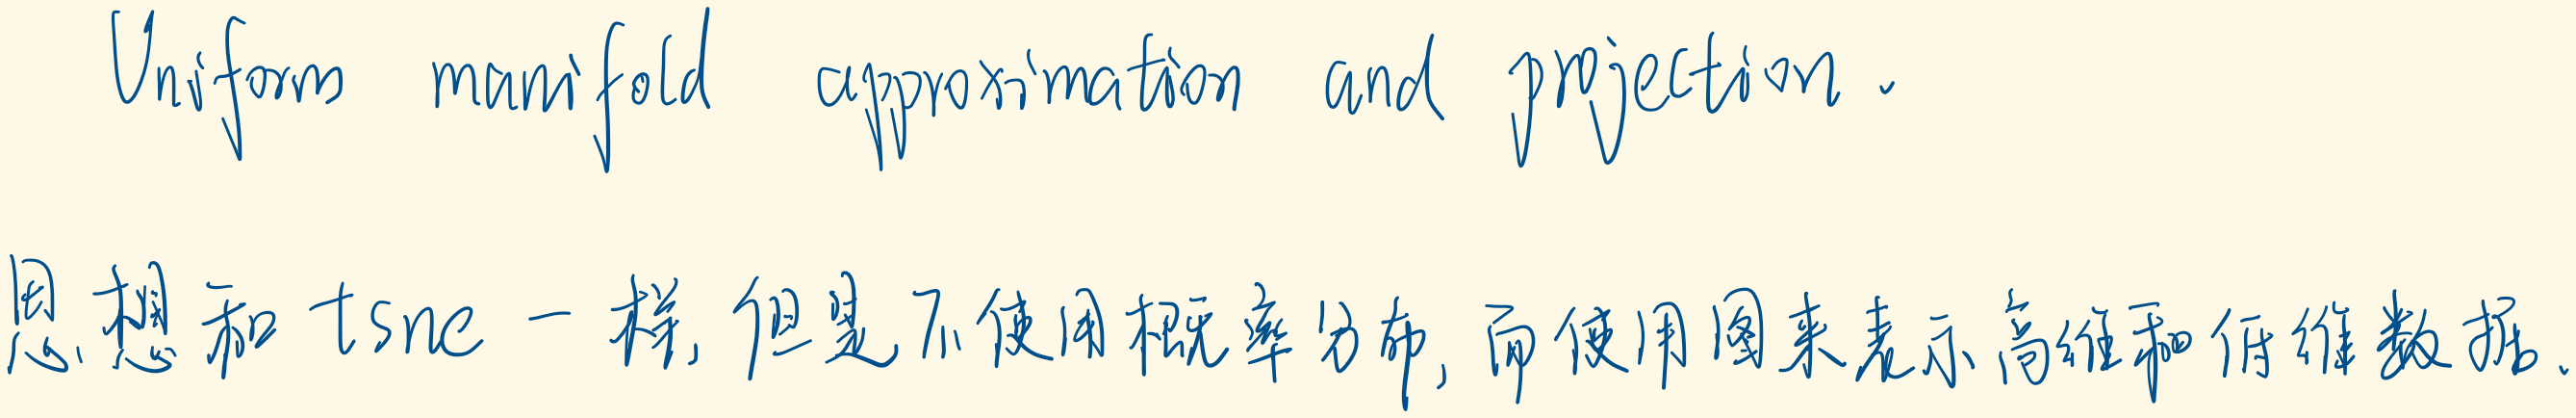 Uniform manifold approximation and projection.
思想和 tsne 一样, 但是不使用概率分布, 而使用图来表示高维和低维数据.